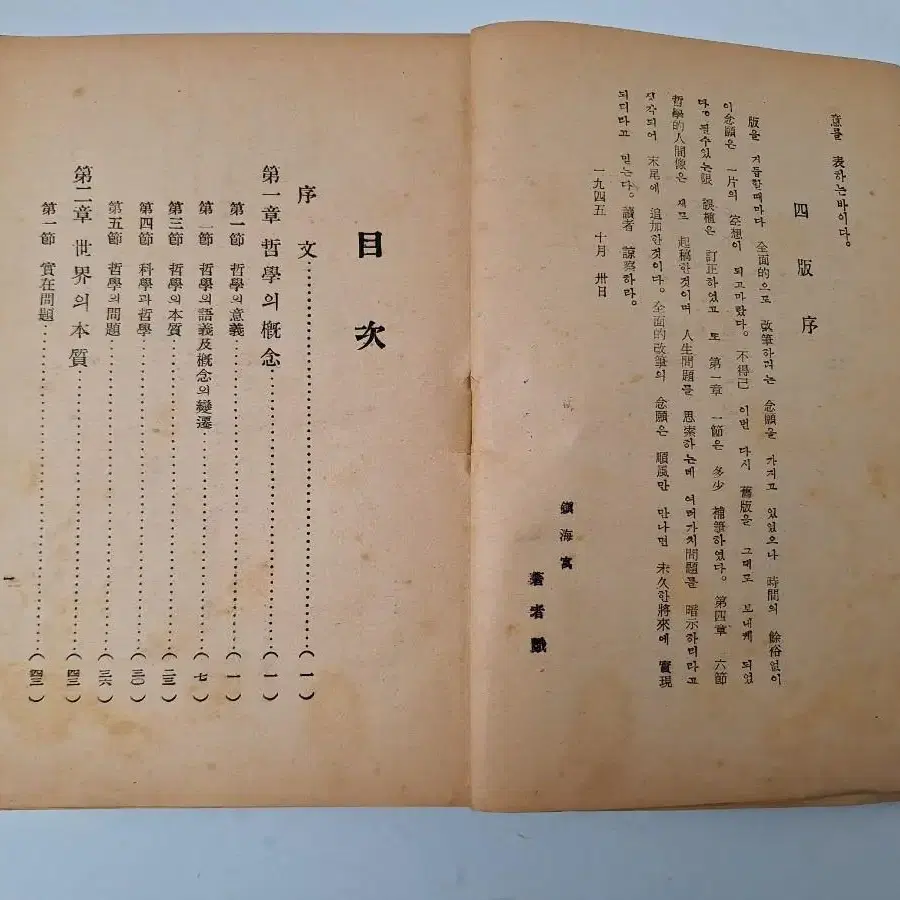 意를 表하는바이다。
四版序
版을 거듭할때마다 全面的으로 改筆하리는 念願을 가지고 있었으나 時間의 餘俗없이
이念願은 一片의 空想이 되고마랐다。不得已 이번 다시 舊版을 그대로 보내게 되었
다。될수있는限 誤植은 訂正하였고 또 第一章 一節은 多少 補筆하였다。第四章 六節
哲學的人間像은 새로 起稿한것이며 人生問題를 思索하는데 여러가치問題를 暗示하리라고
생각되어 末尾에 追加한것이다。全面的改筆의 念願은 順風만 만나면 未久한將來에 實現
되리라고 믿는다。讀者 諒察하라。
一九四五 十月 卅日
鎭海寓
著者識
目次
序文………(一)
第一章 哲學의槪念………(一)
第一節 哲學의意義………(一)
第二節 哲學의語義及槪念의變遷………(七)
第三節 哲學의本質………(二三)
第四節 科學과哲學………(三〇)
第五節 哲學의問題………(三六)
第二章 世界의本質………(四三)
第一節 實在問題………(四三)
一